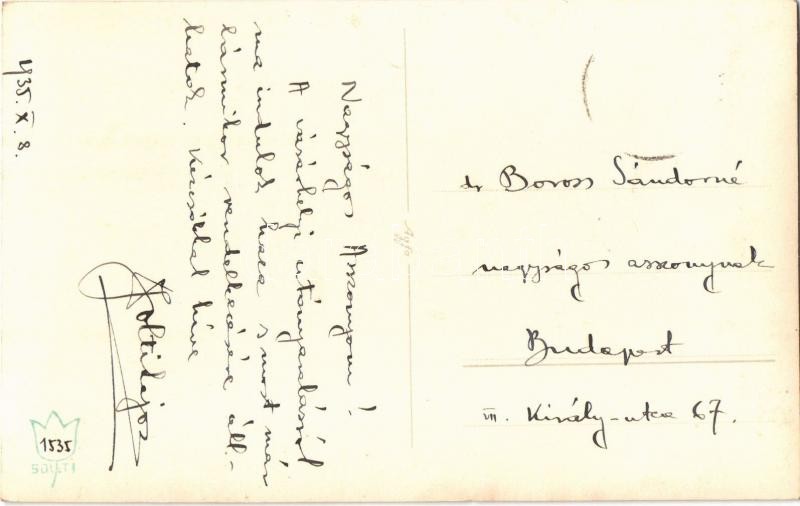 1935. X. 8.
Nagyságos Asszonyom!
A vásárhelyi utányaralásról
ma indulok haza s most már
bármikor rendelkezésére áll-
hatok. Kézcsókkal híve
Solti Lajos
dr Boross Sándorné
nagyságos asszonynak
Budapest
VII. Király-utca 67.
1535
SOLTI